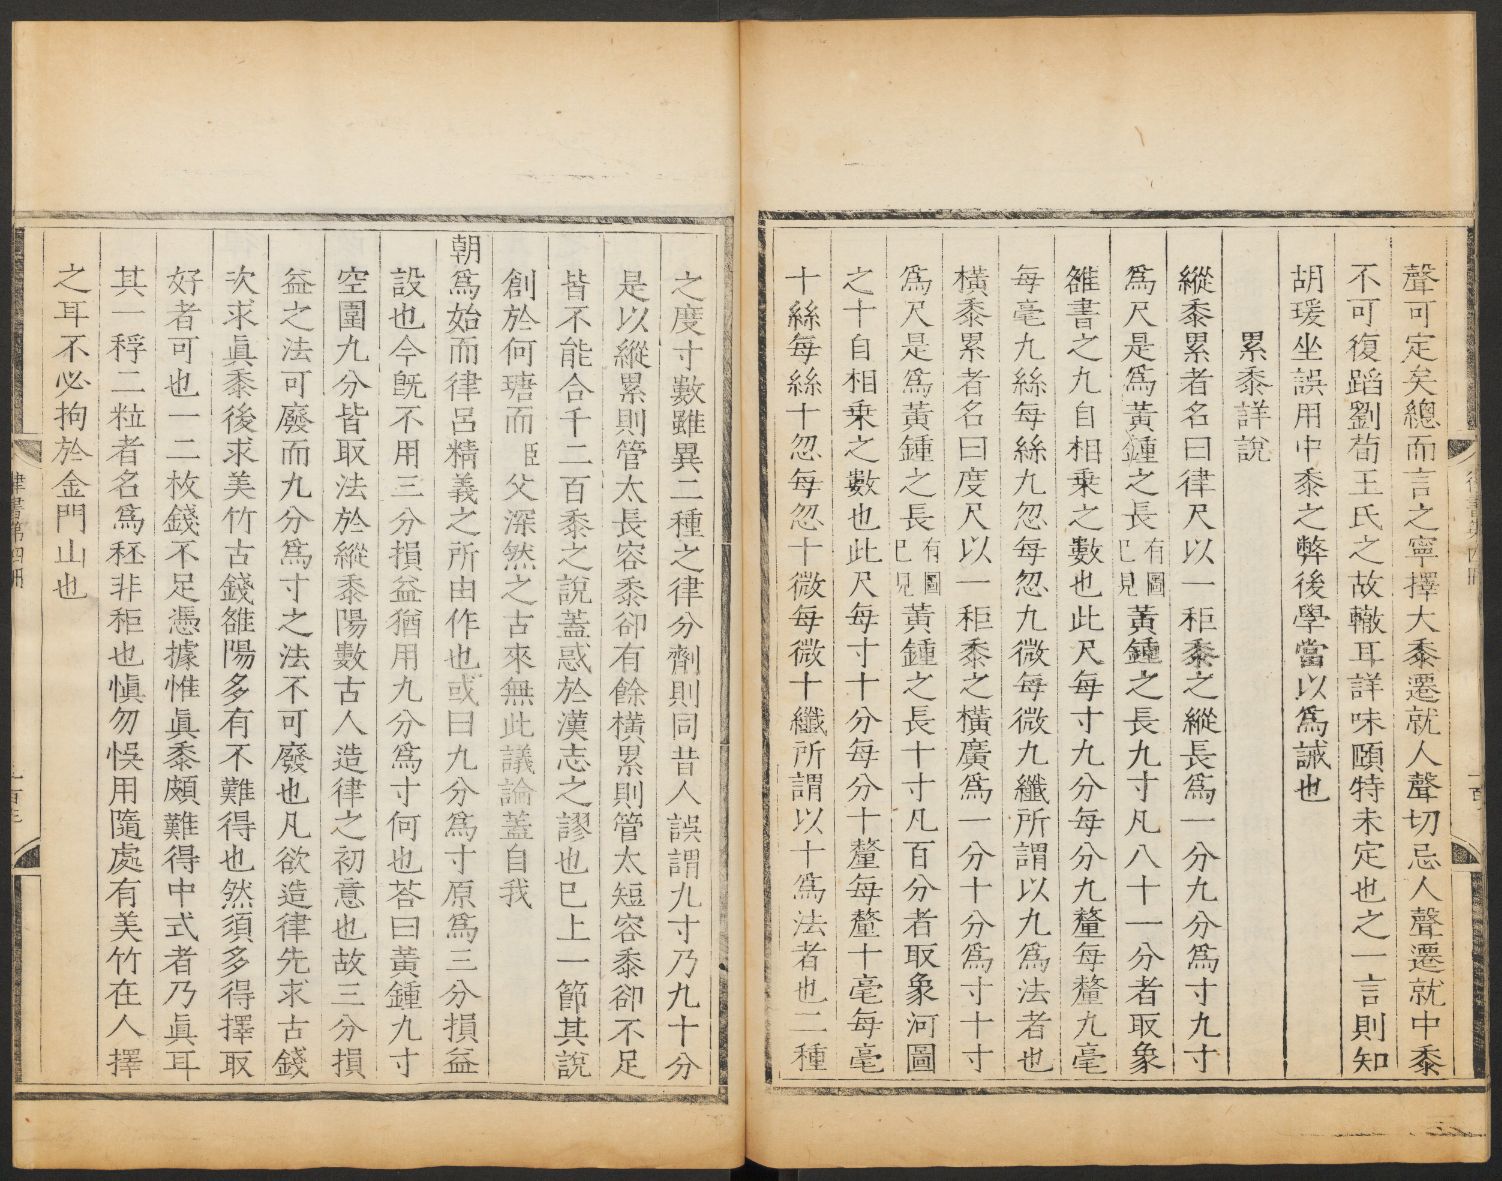 聲可定矣總而言之寧擇大黍遷就人聲切忌人聲遷就中黍
不可復蹈劉荀王氏之故轍耳詳味頤特未定也之一言則知
胡瑗坐誤用中黍之弊後學當以爲誡也
累黍詳說
縱黍累者名曰律尺以一秬黍之縱長爲一分九分爲寸九寸
爲尺是爲黃鍾之長有圖已見黃鍾之長九寸凡八十一分者取象
雒書之九自相乗之數也此尺每寸九分每分九釐每釐九毫
每毫九絲每絲九忽每忽九微每微九纖所謂以九爲法者也
橫黍累者名曰度尺以一秬黍之橫廣爲一分十分爲寸十寸
爲尺是爲黃鍾之長有圖已見黃鍾之長十寸凡百分者取象河圖
之十自相乗之數也此尺每寸十分每分十釐每釐十毫每毫
十絲每絲十忽每忽十微每微十纖所謂以十爲法者也二種
之度寸數雖異二種之律分劑則同昔人誤謂九寸乃九十分
是以縱累則管太長容黍卻有餘橫累則管太短容黍卻不足
皆不能合千二百黍之說蓋惑於漢志之謬也已上一節其說
創於何瑭而臣父深然之古來無此議論蓋自我
朝爲始而律呂精義之所由作也或曰九分爲寸原爲三分損益
設也今旣不用三分損益猶用九分爲寸何也荅曰黃鍾九寸
空圍九分皆取法於縱黍陽數古人造律之初意也故三分損
益之法可廢而九分爲寸之法不可廢也凡欲造律先求古錢
次求眞黍後求美竹古錢雒陽多有不難得也然須多得擇取
好者可也一二枚錢不足憑據惟眞黍頗難得中式者乃眞耳
其一稃二粒者名爲秠非秬也愼勿悞用隨處有美竹在人擇
之耳不必拘於金門山也
律書第四冊